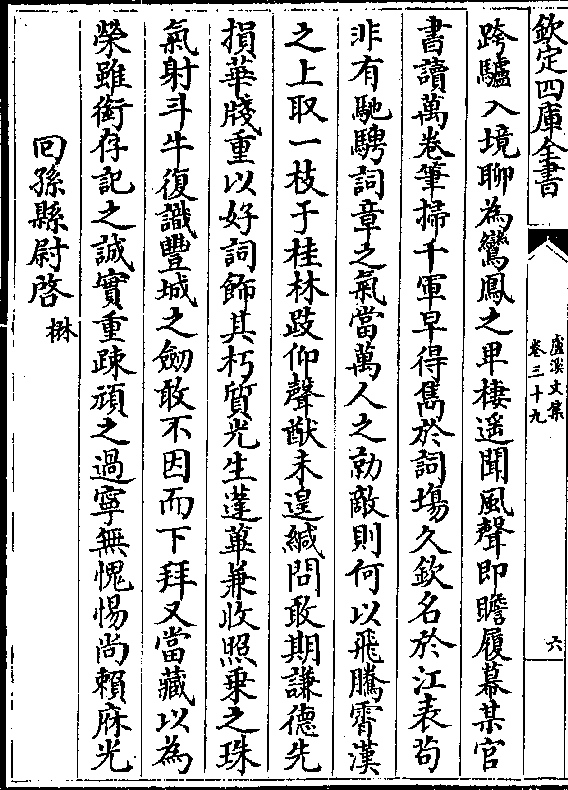 欽定四庫全書
盧溪文集
卷三十九
六
跨驢入境聊為鸞鳳之卑棲遥聞風聲即瞻履幕某官
書讀萬卷筆掃千軍早得雋於詞塲久欽名於江表茍
非有馳騁詞章之氣當萬人之勍敵則何以飛騰霄漢
之上取一枝于桂林跂仰聲猷未遑緘問敢期謙德先
損華牋重以好詞飾其朽質光生蓬蓽兼收照乗之珠
氣射斗牛復識豐城之劒敢不因而下拜又當藏以為
榮雖銜存記之誠實重踈頑之過寧無愧惕尚賴庥光
回孫縣尉啓楙